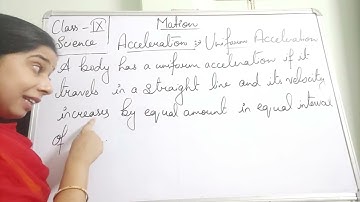 Class - IX
Science
Motion
Acceleration :- Uniform Acceleration
A body has a uniform acceleration if it
travels in a straight line and its velocity
increases by equal amount in equal interval
of